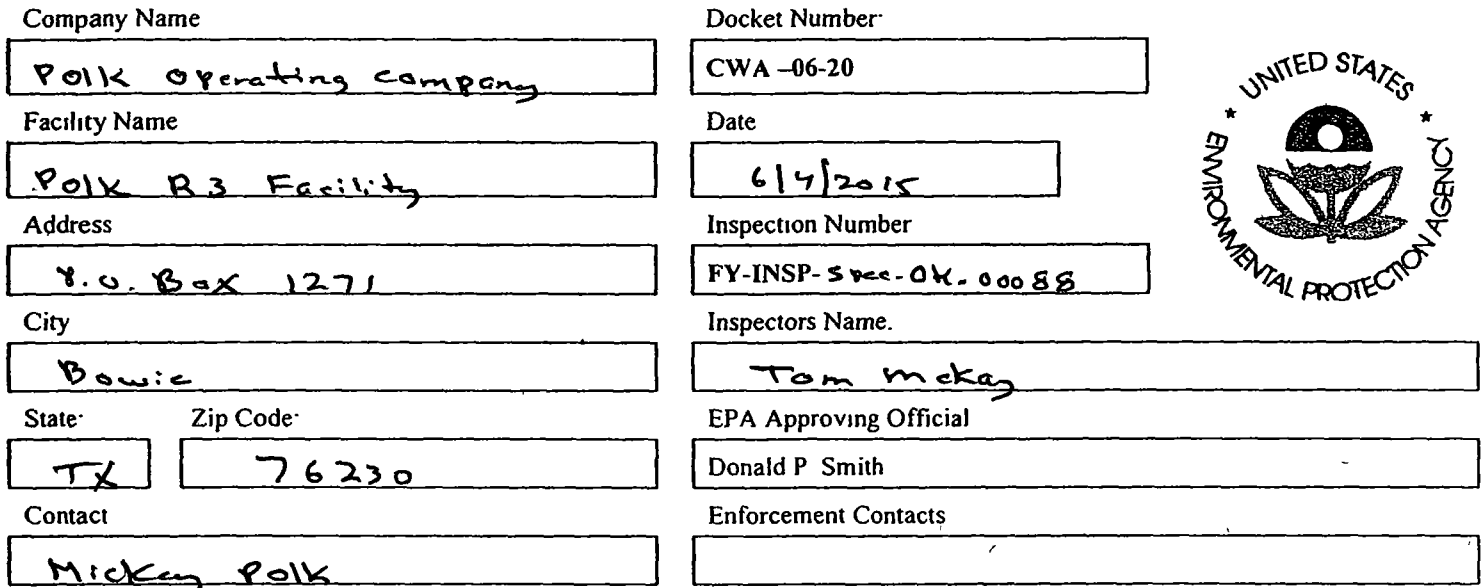 Company Name
Polk Operating Company
Facility Name
Polk R3 Facility
Address
P.O. Box 1271
City
Bowie
State
Zip Code
TX
76230
Contact
Mickey Polk
Docket Number
CWA -06-20
Date
6/4/2015
Inspection Number
FY-INSP-SPCC-OK-00088
Inspectors Name.
Tom McKay
EPA Approving Official
Donald P Smith
Enforcement Contacts
UNITED STATES
ENVIRONMENTAL PROTECTION AGENCY